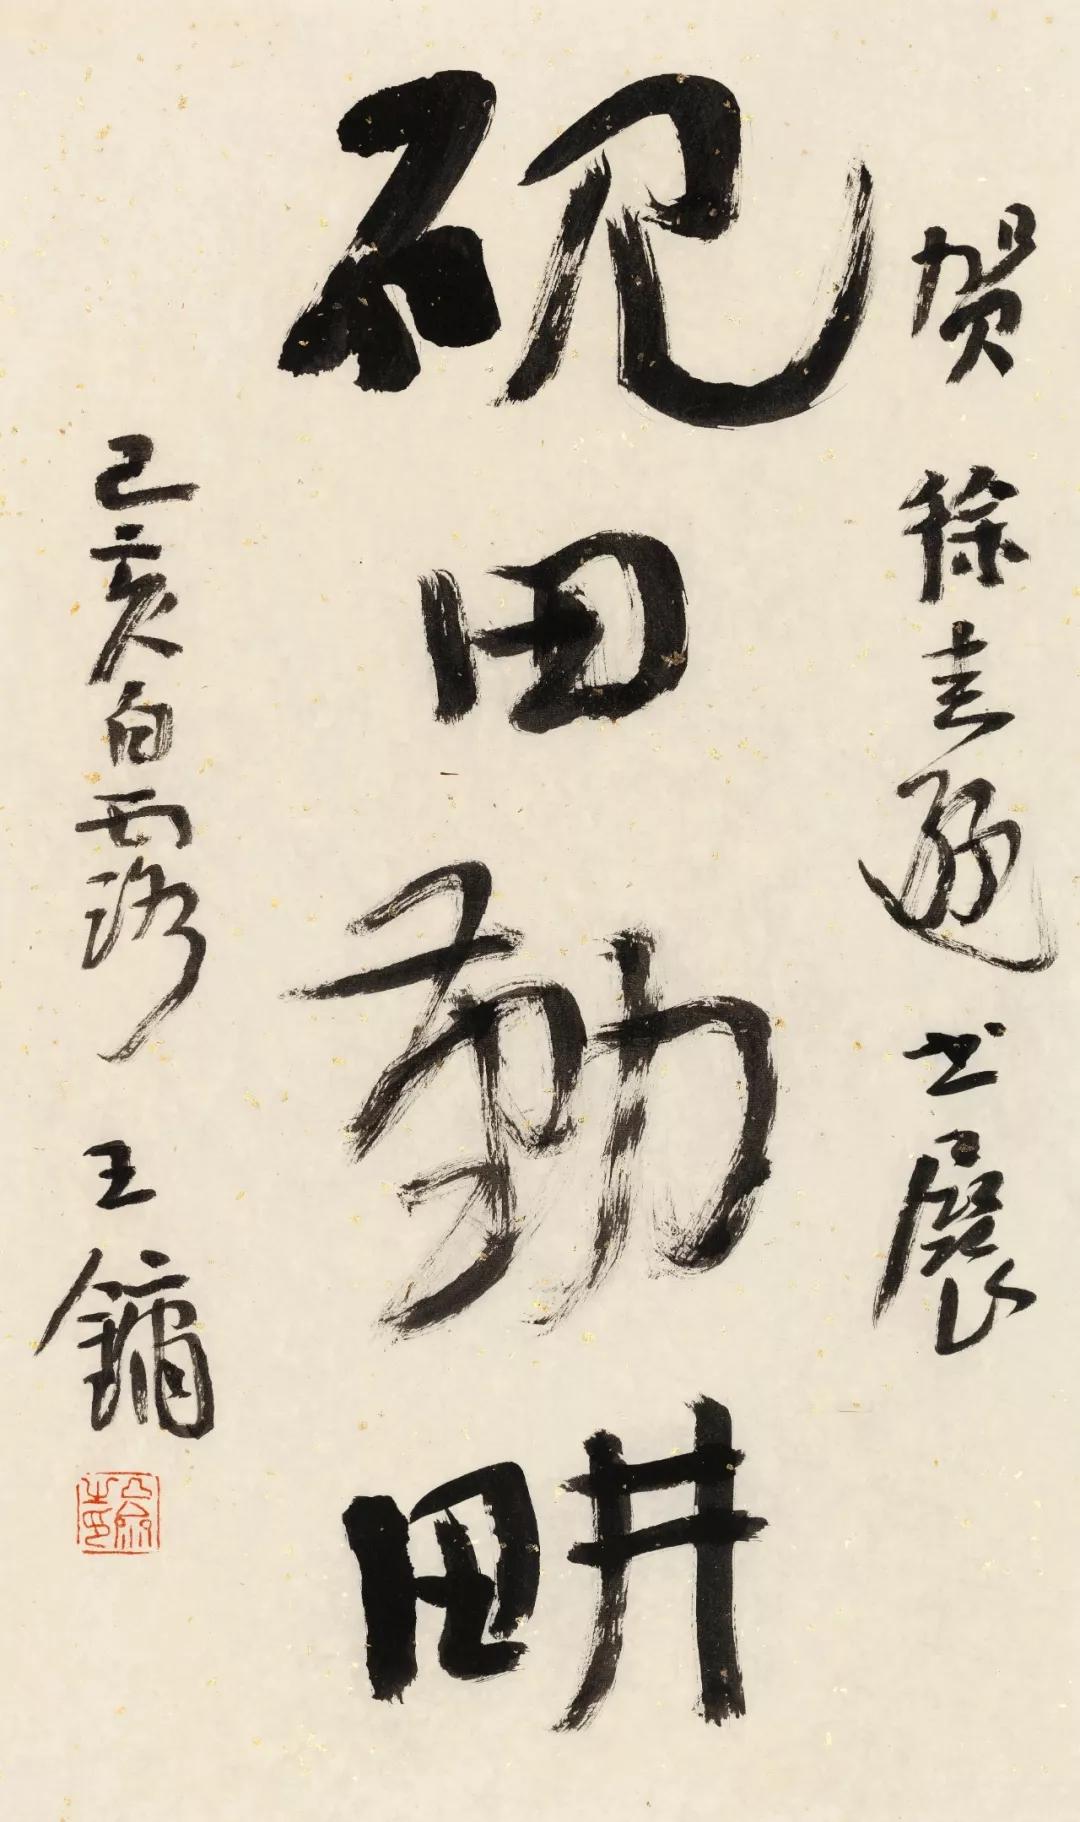 贺 徐圭逊 书展
砚田勤畊
己亥白露 王镛